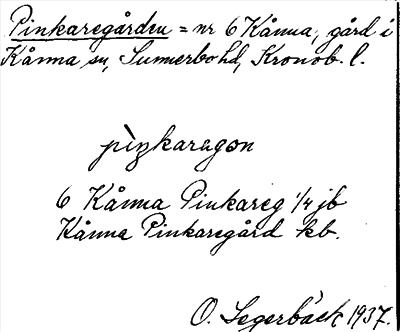 Pinkaregården = nr 6 Kånna, gård i
Kånna sn, Sunnerbo hd, Kronob. l.
pìŋkaragon
6 Kånna Pinkareg 1/4 jb
Kånna Pinkaregård kb.
O. Segerbäck 1937.